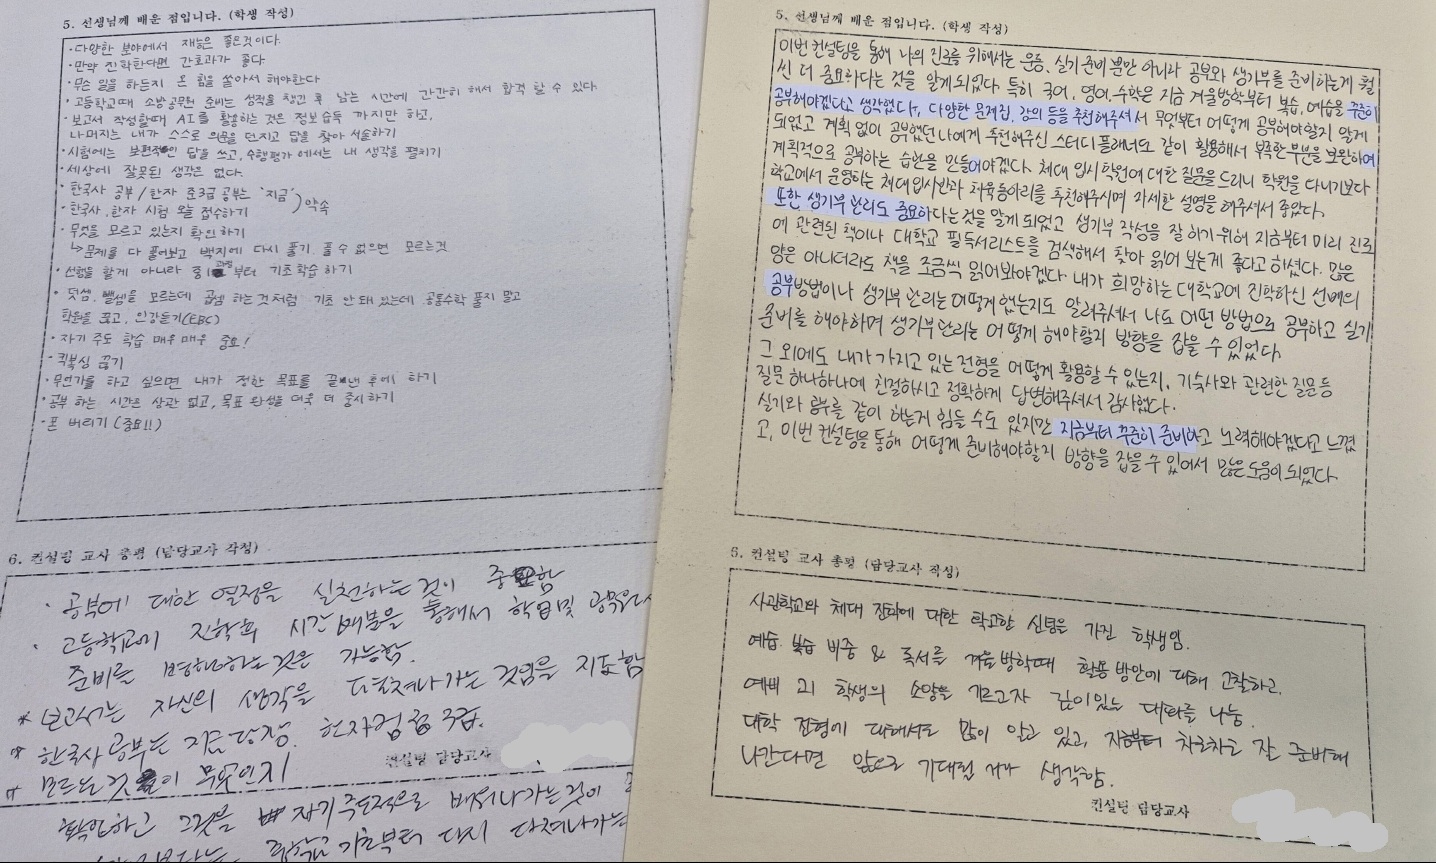 5. 선생님께 배운 점입니다. (학생 작성)
· 다양한 분야에서 재능은 좋은것이다.
· 만약 진학한다면 간호과가 좋다
· 무슨 일을 하든지 온 힘을 쏟아서 해야한다
· 고등학교때 소방공무원 준비는 성적을 챙긴 후 남는 시간에 간간히 해서 합격 할 수 있다
· 보고서 작성할때 AI를 활용하는 것은 정보습득 까지만 하고,
나머지는 내가 스스로 의문을 던지고 답을 찾아 서술하기
· 시험에는 보편적인 답을 쓰고, 수행평가에서는 내 생각을 펼치기
· 세상에 잘못된 생각은 없다.
· 한국사 공부 / 한자 준3급 공부는 '지금'
· 한국사, 한자 시험 오늘 접수하기 ) 약속
· 무엇을 모르고 있는지 확인하기
↳ 문제를 다 풀어보고 백지에 다시 풀기. 풀 수 없으면 모르는것
· 선행을 할게 아니라 중1 과정부터 기초학습하기
· 덧셈, 뺄셈을 모르는데 곱셈 하는것처럼 기초 안돼 있는데 공통수학 풀지 말고
학원을 끊고, 인강듣기(EBC)
· 자기 주도 학습 매우매우 중요!
· 픽북심 끊기
· 무언가를 하고 싶으면 내가 정한 목표를 끝낸 후에 하기
· 공부 하는 시간은 상관 없고, 목표 완성을 더욱 더 중시하기
· 폰 버리기 (중요!!)
6. 컨설팅 교사 총평 (담당교사 작성)
· 공부에 대한 열정을 실천하는 것이 중요함
· 고등학교에 진학후 시간배분을 통해서 학업 및 공무원시
준비를 병행하는 것은 가능함.
* 보고서는 자신의 생각을 더 펼쳐나가는 것임을 지도함
* 한국사 공부는 지금 당장. 한자검정 3급.
컨설팅 담당교사
* 모르는 것이 무엇인지
확인하고 그것을 자기주도적으로 배워나가는것이
중학교 기초부터 다시 다져나가는
5. 선생님께 배운 점입니다. (학생 작성)
이번 컨설팅을 통해 나의 진로를 위해서는 운동, 실기 준비 뿐만 아니라 공부와 생기부를 준비하는게 훨
씬 더 중요하다는 것을 알게 되었다. 특히 국어, 영어, 수학은 지금 겨울방학부터 복습, 예습을 꾸준히
공부해야겠다고 생각했다. 다양한 문제집, 강의 등을 추천해주셔서 무엇부터 어떻게 공부해야할지 알게
되었고 계획 없이 공부했던 나에게 추천해주신 스터디 플래너도 같이 활용해서 부족한 부분을 보완하여
계획적으로 공부하는 습관을 만들어야겠다. 체대 입시 학원에 대한 질문을 드리니 학원을 다니기보다
학교에서 운영하는 체대입시반과 체육동아리를 추천해주시며 자세한 설명을 해주셔서 좋았다.
또한 생기부 관리도 중요하다는 것을 알게 되었고 생기부 작성을 잘 하기 위해 지금부터 미리 진로
에 관련된 책이나 대학교 필독서리스트를 검색해서 찾아 읽어 보는게 좋다고 하셨다. 많은
양은 아니더라도 책을 조금씩 읽어봐야겠다. 내가 희망하는 대학교에 진학하신 선배의
공부방법이나 생기부 관리는 어떻게 했는지도 알려주셔서 나도 어떤 방법으로 공부하고 실기
준비를 해야하며 생기부관리는 어떻게 해야할지 방향을 잡을 수 있었다.
그 외에도 내가 가지고 있는 전형을 어떻게 활용할 수 있는지, 기숙사와 관련한 질문 등
질문 하나하나에 친절하시고 정확하게 답변해주셔서 감사했다.
실기와 공부를 같이 하는게 힘들 수도 있지만 지금부터 꾸준히 준비하고 노력해야겠다고 느꼈
고, 이번 컨설팅을 통해 어떻게 준비해야할지 방향을 잡을 수 있어서 많은 도움이 되었다.
6. 컨설팅 교사 총평 (담당교사 작성)
사관학교와 체대 진학에 대한 확고한 신념을 가진 학생임.
예습 복습 비중 & 독서를 겨울방학때 활용 방안에 대해 고찰하고.
예비 고1 학생의 소양을 기르고자 깊이있는 대화를 나눔.
대학 전형에 대해서도 많이 알고 있고, 지금부터 차근차근 잘 준비해
나간다면 앞으로 기대될 거라 생각함.
컨설팅 담당교사